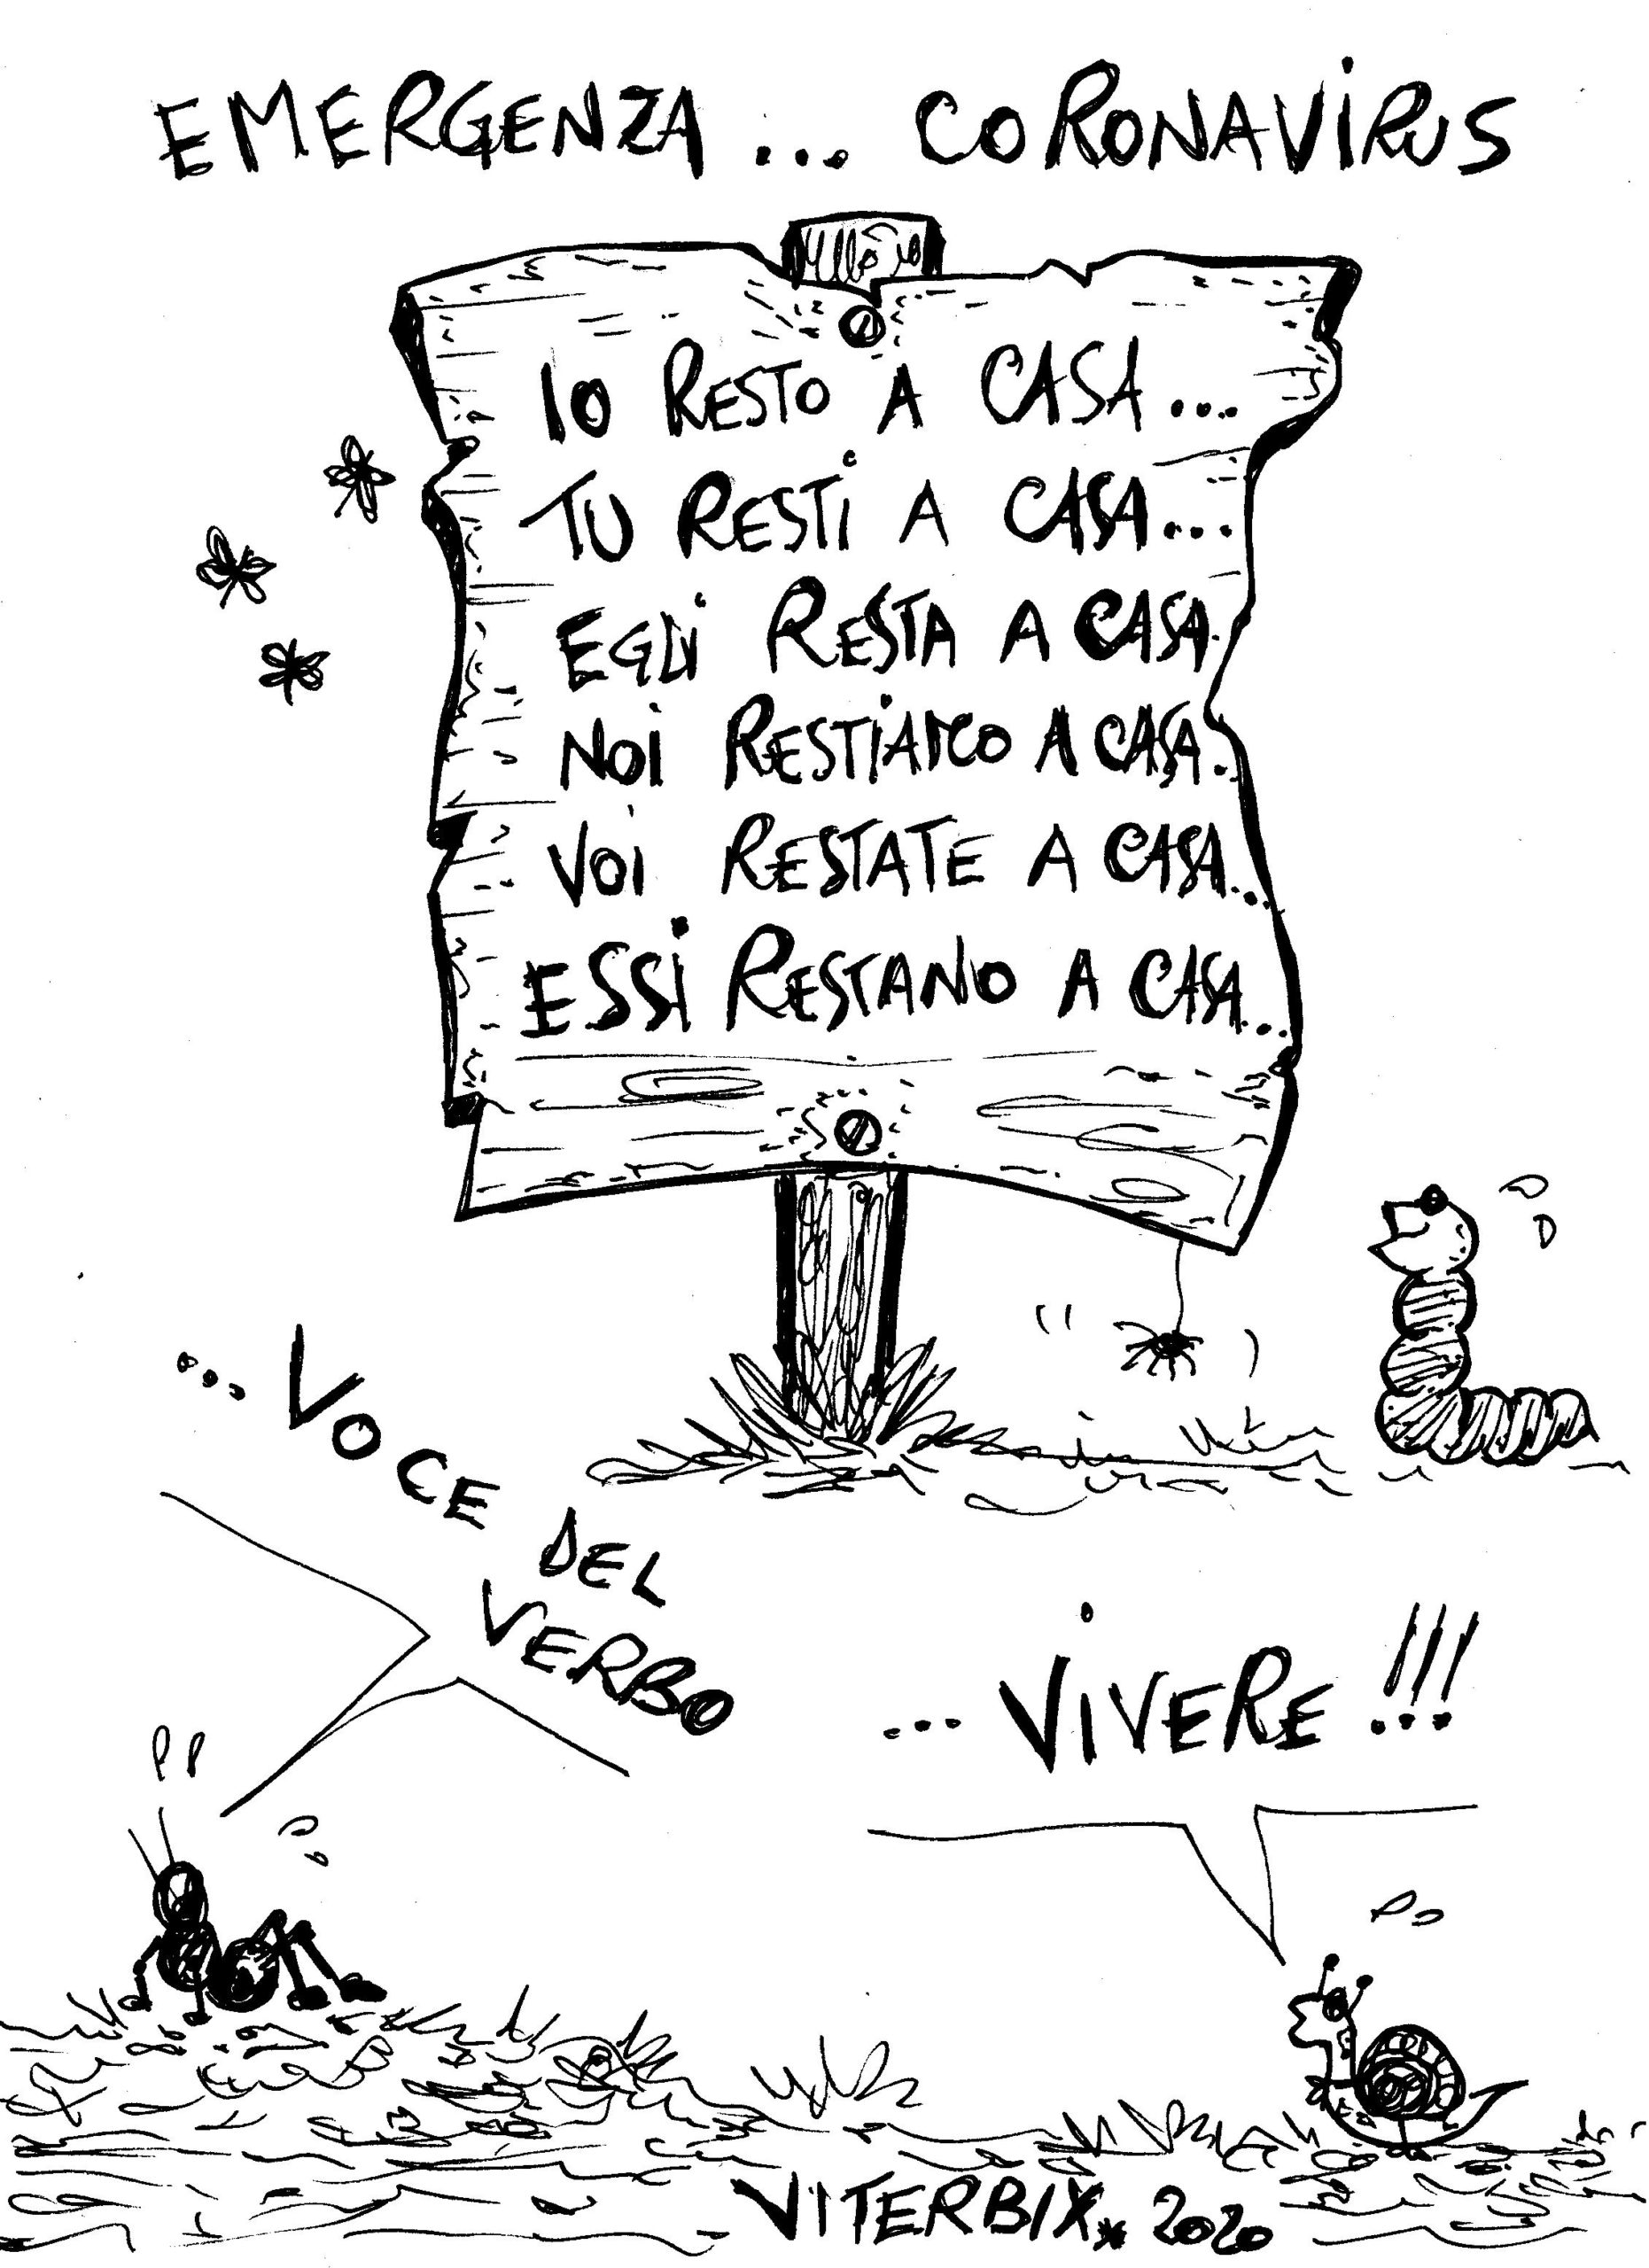 EMERGENZA... CORONAVIRUS
IO RESTO A CASA...
TU RESTI A CASA...
EGLI RESTA A CASA.
NOI RESTIAMO A CASA.
VOI RESTATE A CASA...
ESSI RESTANO A CASA...
...VOCE DEL
VERBO
...VIVERE!!!
VITERBIX* 2020